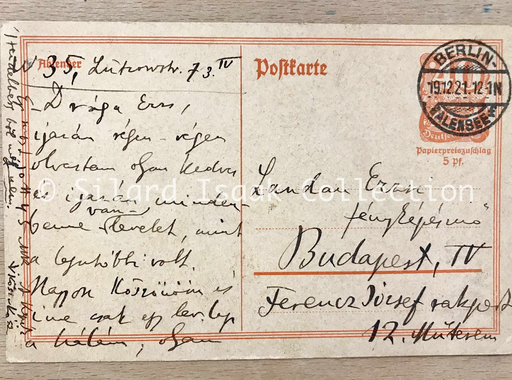 Absender
W 35, Lützowstr. 73. IV
Postkarte
BERLIN-
19.12.21. 12-1N
HALENSEE
40
Papierpreiszuschlag
5 pf.
Drága Erzsi,
igazán régen-régen
olvastam olyan kedves
és igazán minden-
benne van levelet, mint
a legutóbbi volt.
Nagyon köszönöm és
íme csak egy lev. lap
a hálám, olyan
Landau Erzsi
fényképésznő
Budapest, IV
Ferencz József rakpart
12. Műterem
© Silard Isaak Collection